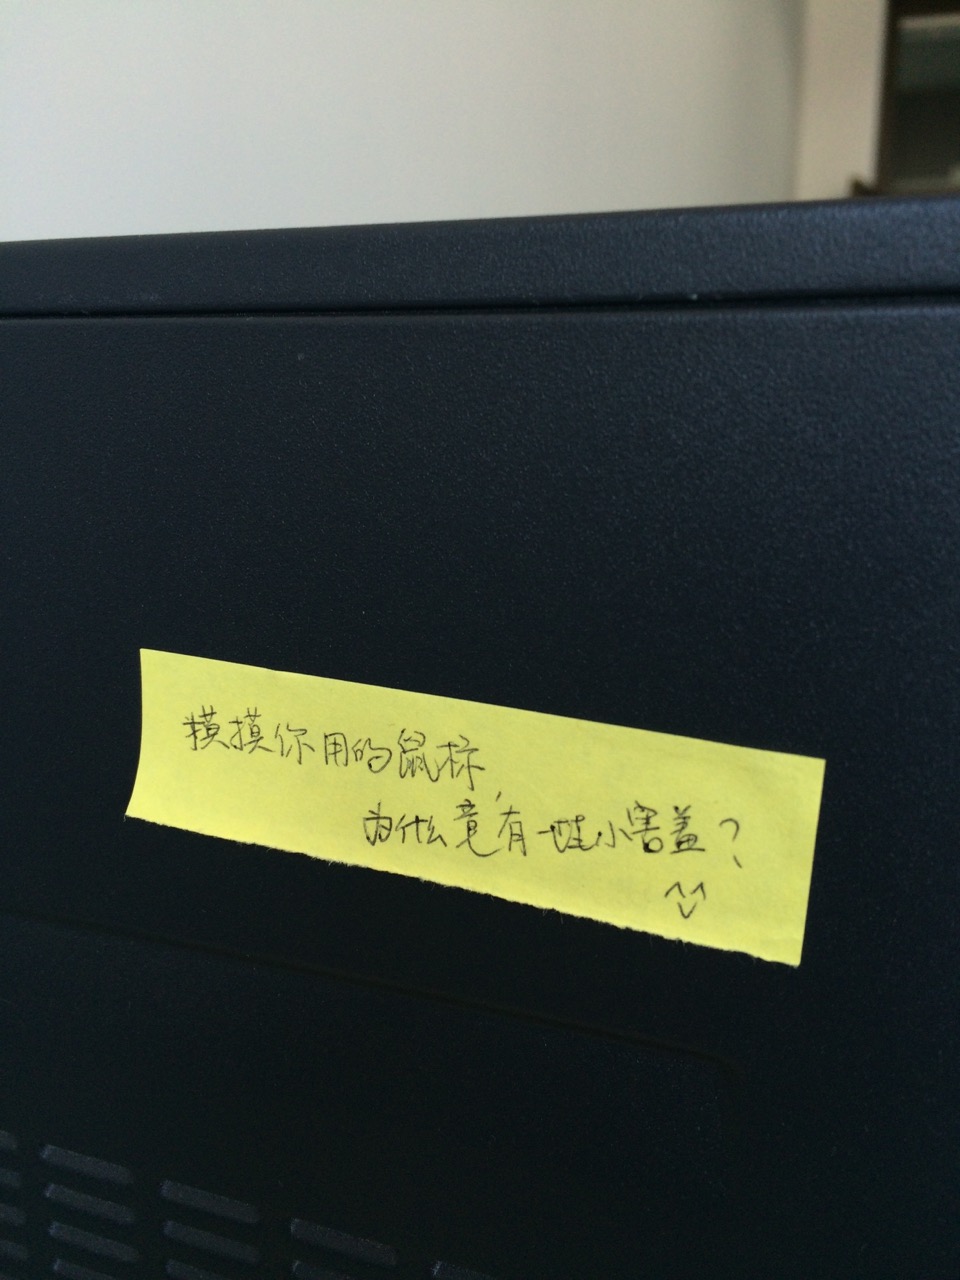 摸摸你用的鼠标,
为什么竟有一哇小害羞?